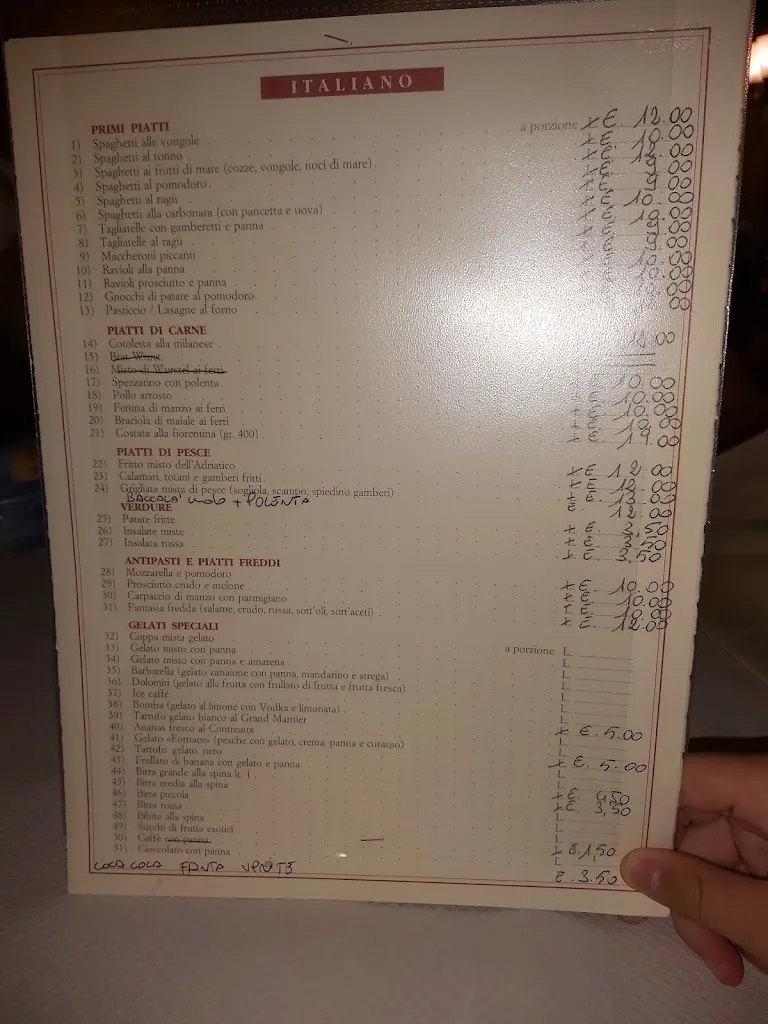 ITALIANO
PRIMI PIATTI a porzione € 12.00
1) Spaghetti alle vongole
2) Spaghetti al tonno
3) Spaghetti ai frutti di mare (cozze, vongole, noci di mare)
4) Spaghetti al pomodoro
5) Spaghetti al ragù
6) Spaghetti alla carbonara (con pancetta e uova)
7) Tagliatelle con gamberetti e panna
8) Tagliatelle al ragù
9) Maccheroni piccanti
10) Ravioli alla panna
11) Ravioli prosciutto e panna
12) Gnocchi di patate al pomodoro
13) Pasticcio / Lasagne al forno
PIATTI DI CARNE
14) Cotoletta alla milanese 12.00
15) Brat Wurst
16) Misto di Wurstel ai ferri
17) Spezzatino con polenta 10.00
18) Pollo arrosto € 10.00
19) Fettina di manzo ai ferri € 10.00
20) Braciola di maiale ai ferri € 10.00
21) Costata alla fiorentina (gr. 400) €
PIATTI DI PESCE
22) Fritto misto dell'Adriatico € 12.00
23) Calamari, totani e gamberi fritti € 12.00
24) Grigliata mista di pesce (sogliola, scampo, spiedino gamberi) € 13.00
BACCOLA' + POLENTA € 12.00
VERDURE
25) Patate fritte € 3,50
26) Insalate miste € 3,50
27) Insalata russa € 3.50
ANTIPASTI E PIATTI FREDDI
28) Mozzarella e pomodoro € 10.00
29) Prosciutto crudo e melone € 10.00
30) Carpaccio di manzo con parmigiano € 10.00
31) Fantasia fredda (salame, crudo, russa, sott'oli, sott'aceti) € 12.00
GELATI SPECIALI
32) Coppa mista gelato a porzione L.
33) Gelato misto con panna L.
34) Gelato misto con panna e amarena L.
35) Barbarella (gelato zabaione con panna, mandarino e strega) L.
36) Dolomini (gelato alla frutta con frullato di frutta e frutta fresca) L.
37) Ice caffè L.
38) Bomba (gelato al limone con Vodka e limonata) L.
39) Tartufo gelato bianco al Grand Marnier
40) Ananas fresco al Contreaux € 5.00
41) Gelato «Fornace» (pesche con gelato, crema, panna e curacao) L.
42) Tartufo gelato nero € 5.00
43) Frullato di banana con gelato e panna L.
44) Birra grande alla spina lt. 1
45) Birra media alla spina € 4,50
46) Birra piccola € 3,50
47) Birra rossa L.
48) Bibite alla spina L.
49) Succhi di frutta esotici L.
50) Caffè con panna € 1,50
51) Cioccolato con panna L.
COCA COLA FANTA € 3.50